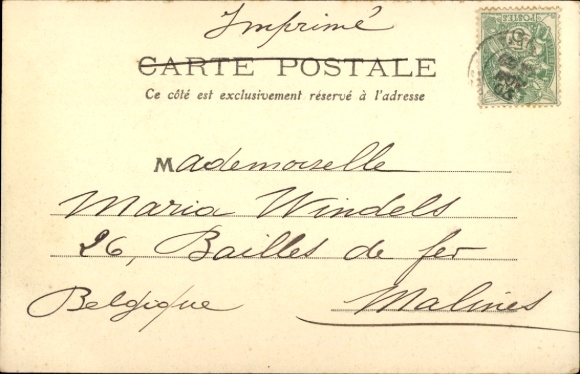 Imprimé
CARTE POSTALE
Ce côté est exclusivement réservé à l'adresse
Mademoiselle
Maria Windels
26, Bailles de fer
Belgique Malines
POSTES
5